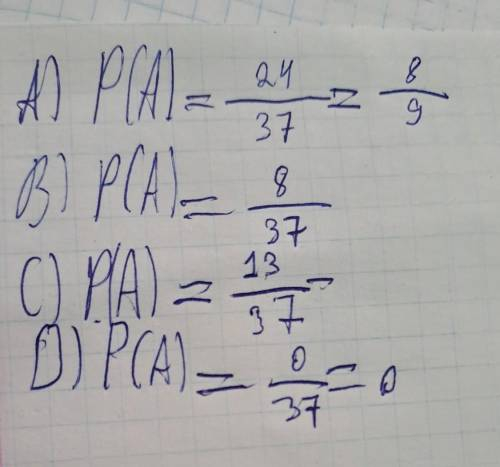 A) P(A) = 24/37 = 8/9
B) P(A) = 8/37
C) P(A) = 13/37 =
D) P(A) = 0/37 = 0